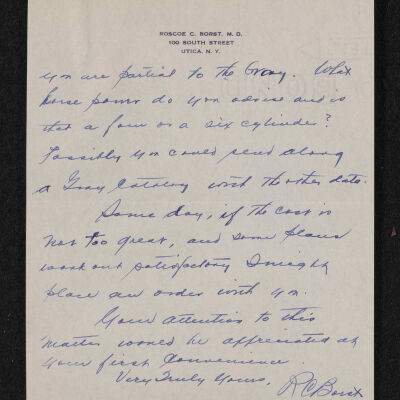 ROSCOE C. BORST, M. D.
100 SOUTH STREET
UTICA, N. Y.
you are partial to the Gray. What
horse power do you advise and is
that a four or a six cylinder?
Possibly you could send along
a Gray Catalog with the other data.
Some day, if the cost is
not too great, and some plans
work out satisfactory I might
place an order with you.
Your attention to this
matter would be appreciated at
your first convenience.
Very Truly Yours,
R C Borst